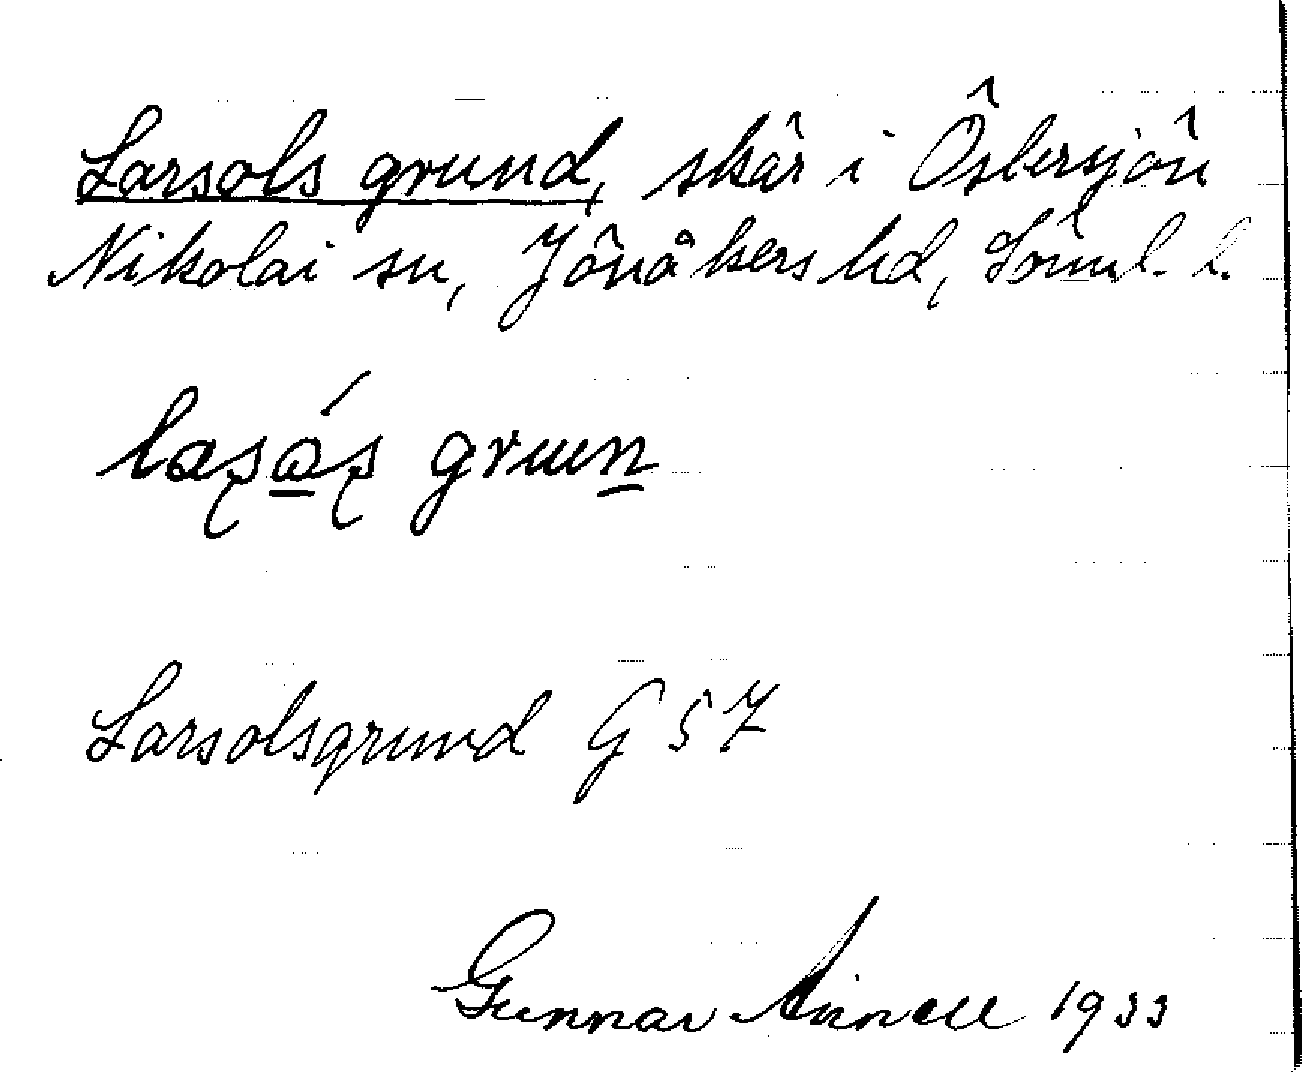 Larsols grund, skär i Östersjön
Nikolai sn, Jönåkers hd, Söml. l.
grun
Larsolsgrund G S 7
Gunnar 1933